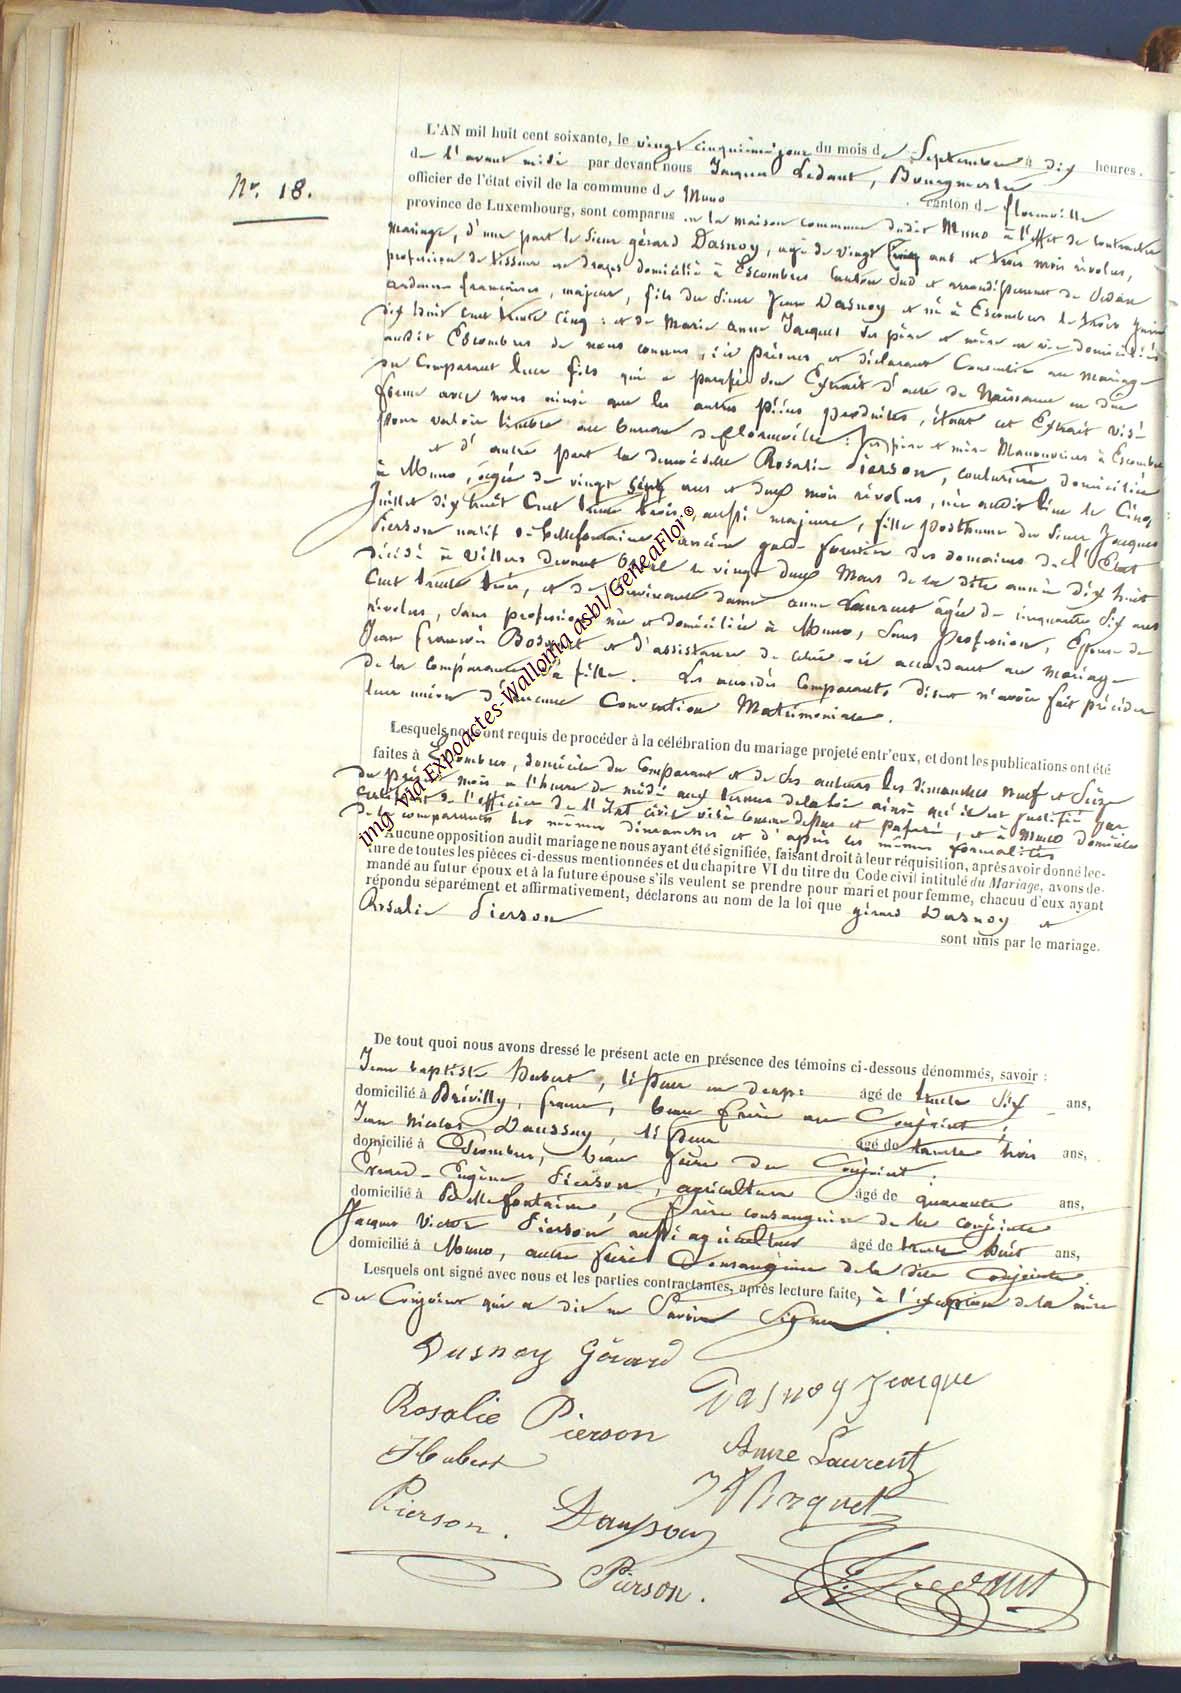 Nr. 18.
L'AN mil huit cent soixante, le vingt cinquième jour du mois de Septembre à dix heures.
de l'avant midi par devant nous Jacques Ledant, Bourgmestre
officier de l'état civil de la commune de Muno canton de florenville
province de Luxembourg, sont comparus en la maison commune dudit Muno à l'effet de contracter
mariage, d'une part le Sieur gérard Dasnoy, agé de vingt cinq ans et trois mois révolus,
profession de tisseur en draps domicilié à Escombres Canton Sud et arrondissement de Sedan
ardennes françaises, majeur, fils du Sieur Jean Dasnoy et né à Escombres le trois Juin
dix huit cent trente cinq : et de Marie anne Jacques ses père et mère en vie domiciliés
audit Escombres de nous connus, ici présens et déclarant Consentir au mariage
du Comparant leur fils qui a paraphé son Extrait d'acte de Naissance en due
forme avec nous ainsi que les autres pièces produites, étant cet Extrait visé
pour valoir timbre au bureau de florenville : ses père et mère Manouvriers à Escombres
et d'autre part la demoiselle Rosalie Pierson, couturière, domiciliée
à Muno, agée de vingt sept ans et deux mois révolus, née audit lieu le Cinq
Juillet dix huit Cent trente trois, aussi majeure, fille posthume du Sieur Jacques
Pierson natif de bellefontaine, ancien garde forestier des domaines de l'Etat
décédé à Villers devant Orval le vingt deux Mars de la dite année dix huit
Cent trente trois, et de survivante dame anne Laurent âgée de cinquante Six ans
révolus, sans profession née et domiciliée à Muno, sans profession, Epouse de
Jean françois Bosquet et d'assistance de celui-ci accordant au mariage
de la comparante sa fille. Les susdits Comparants disent n'avoir fait précéder
leur union d'aucune Convention Matrimoniale.
Lesquels nous ont requis de procéder à la célébration du mariage projeté entr'eux, et dont les publications ont été
faites à Escombres, domicile du Comparant et de ses auteurs les dimanches neuf et Seize
du présent mois à l'heure de midi aux termes de la loi ainsi qu'il est justifié par
Certificat de l'officier de l'Etat civil visé comme dessus et paraphé, et à Muno domicile
de la comparante les mêmes dimanches et d'après les mêmes formalités
Aucune opposition audit mariage ne nous ayant été signifiée, faisant droit à leur réquisition, après avoir donné lec-
ture de toutes les pièces ci-dessus mentionnées et du chapitre VI du titre du Code civil intitulé du Mariage, avons de-
mandé au futur époux et à la future épouse s'ils veulent se prendre pour mari et pour femme, chacuu d'eux ayant
répondu séparément et affirmativement, déclarons au nom de la loi que gérard Dasnoy et
Rosalie Pierson
sont unis par le mariage.
De tout quoi nous avons dressé le présent acte en présence des témoins ci-dessous dénommés, savoir :
Jean baptiste Hubert, tisseur en draps agé de trente Six ans,
domicilié à Brévilly, france, beau frère au Conjoint
Jean Nicolas Daussoy, tisseur agé de trente trois ans,
domicilié à Escombres, beau frère du Conjoint.
Eugène Pierson, agriculteur âgé de quarante ans,
domicilié à Bellefontaine, frère consanguin de la conjointe
Jacques Victor Pierson aussi agriculteur agé de trente huit ans,
domicilié à Muno, autre frère Consanguin de la dite Conjointe.
Lesquels ont signé avec nous et les parties contractantes, après lecture faite, à l'exception de la mère
du Conjoint qui a dit ne Savoir Signer.
Dasnoy Gérard
Dasnoy Jeacque
Rosalie Pierson
Anne Laurent
Hubert
Pierson. Daussoy
Pierson.
J. Ledant
img via Expoactes-Wallonia asbl/GeneaFloi®